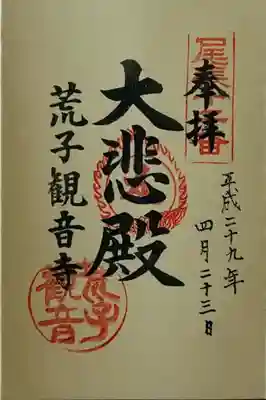 奉拝
平成二十九年
四月二十三日
大悲殿
荒子観音寺
荒子
観音